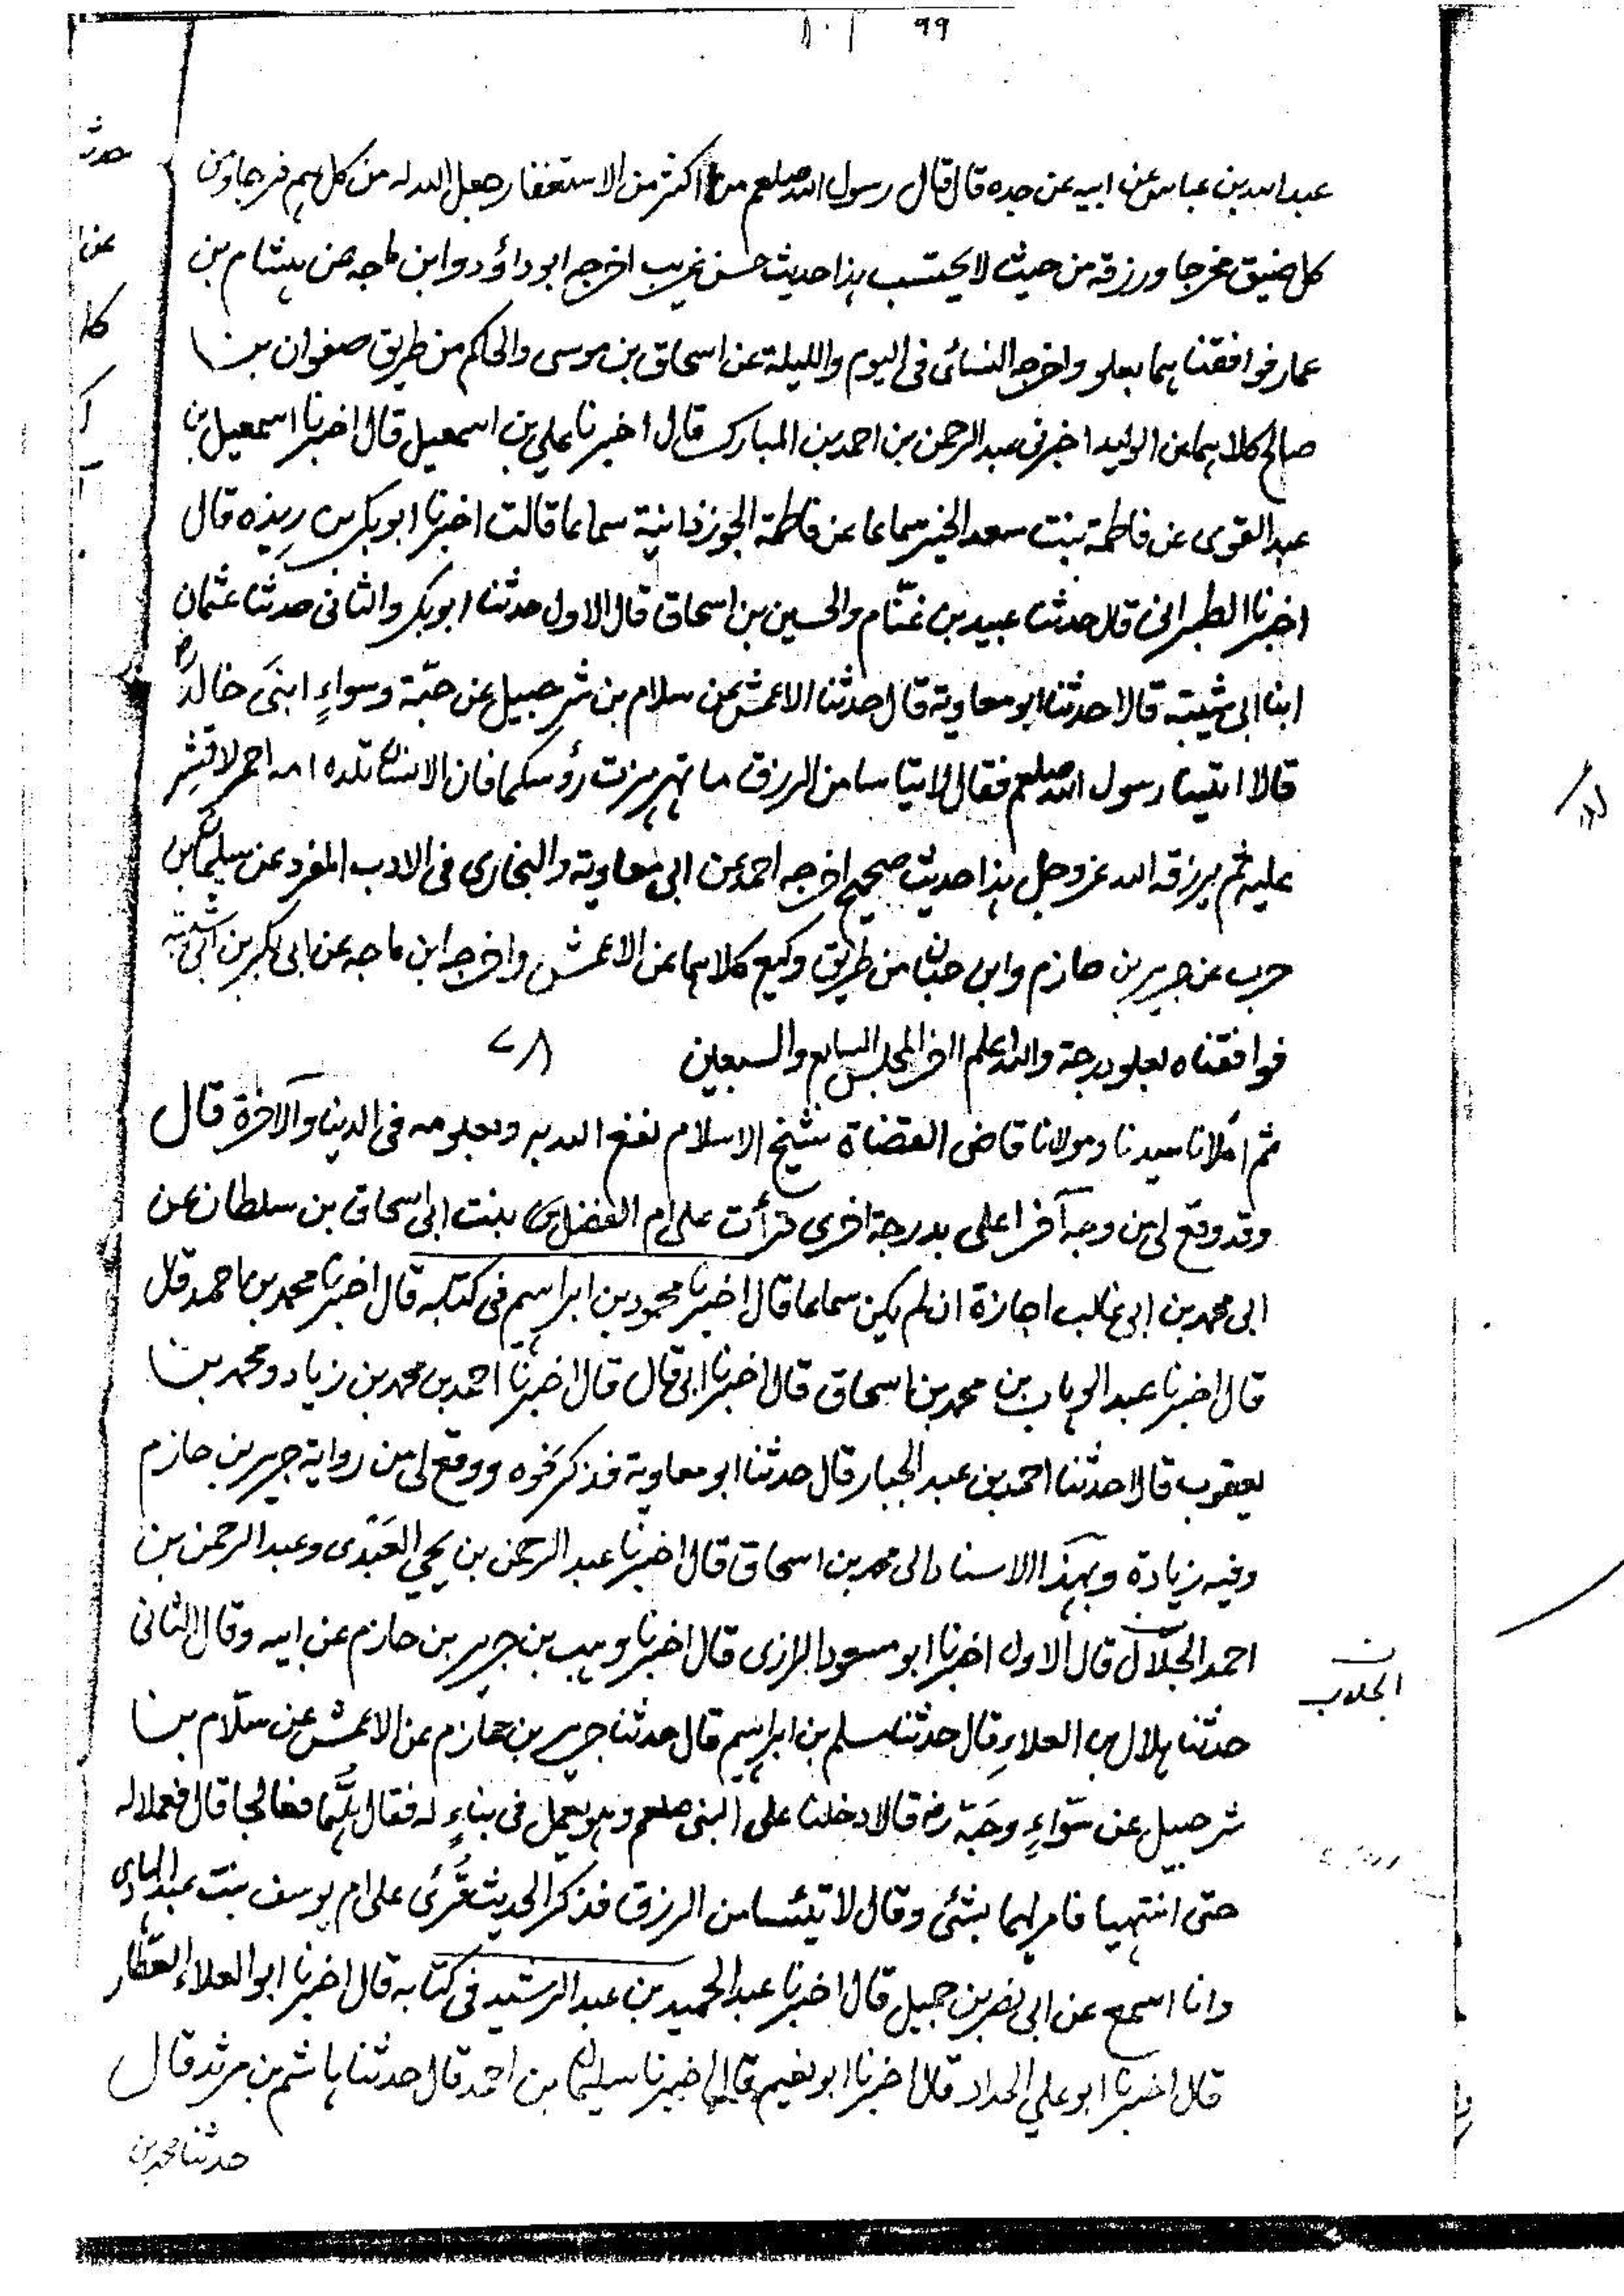 ٩٩ ١٠١
عبد الله بن عباس عن ابيه عن جده قال قال رسول الله صلعم من اكثر من الاستغفار جعل الله له من كل هم فرجا ومن
كل ضيق مخرجا ورزقه من حيث لا يحتسب هذا حديث حسن غريب اخرجه ابو داؤد وابن ماجه عن هشام بن
عمار فوافقنا هما بعلو واخرجه النسائى فى اليوم والليلة عن اسحاق بن موسى والحاكم من طريق صفوان بن
صالح كلاهما عن الوليد اخبرنى عبد الرحمن بن احمد بن المبارك قال اخبرنا على بن اسمعيل قال اخبرنا اسمعيل بن
عبد القوى عن فاطمة بنت سعد الخير سماعا عن فاطمة الجوزذانية سماعا قالت اخبرنا ابو بكر بن ريذه قال
اخبرنا الطبرانى قال حدثنا عبيد بن غنّام والحسين بن اسحاق قال الاول حدثنا ابو بكر والثانى حدثنا عثمان
ابنا ابى شيبة قالا حدثنا ابو معاوية قال حدثنا الاعمش عن سلام بن شرحبيل عن حبّة وسواءٍ ابنَى خالد رض
قالا اتينا رسول الله صلعم فقال لا تيأسا من الرزق ما تهزهزت رؤسكما فان الانسان تلده امه احمر لا قشر
عليه ثم يرزقه الله عز وجل هذا حديث صحيح اخرجه احمد عن ابى معاوية والبخارى فى الادب المفرد عن سليمان بن
حرب عن جرير بن حازم وابن حبان من طريق وكيع كلاهما عن الاعمش واخرجه ابن ماجه عن ابى بكر بن ابى شيبة
فوافقناه بعلو درجة والله اعلم آخر المجلس السابع والسبعين ٧٨
ثم املانا سيدنا ومولانا قاضى القضاة شيخ الاسلام نفع الله به وبعلومه فى الدنيا والآخرة قال
وقد وقع لى من وجه آخر اعلى بدرجة اخرى قرأت على ام الفضل بنت ابى اسحاق بن سلطان عن
ابى محمد بن ابى غالب اجازة ان لم يكن سماعا قال اخبرنا محمود بن ابراهيم فى كتابه قال اخبرنا محمد بن احمد قال
قال اخبرنا عبد الوهاب بن محمد بن اسحاق قال اخبرنا ابى قال قال اخبرنا احمد بن محمد بن زياد ومحمد بن
يعقوب قالا حدثنا احمد بن عبد الجبار قال حدثنا ابو معاوية فذكر نحوه ووقع لى من رواية جرير بن حازم
وفيه زيادة وبهذا الاسناد الى محمد بن اسحاق قال اخبرنا عبد الرحمن بن يحيى العَبْدى وعبد الرحمن بن
احمد الجلّاب قال الاول اخبرنا ابو مسعود الرازى قال اخبرنا وهيب بن جرير بن حازم عن ابيه وقال الثانى
حدثنا هلال بن العلاءِ قال حدثنا مسلم بن ابراهيم قال حدثنا جرير بن حازم عن الاعمش عن سلّام بن
شرحبيل عن سَواءٍ وحَبّة رض قالا دخلنا على النبى صلعم وهو يعمل فى بناءٍ له فقال هَلُمّا فعالجا قال فعملا له
حتى انتهيا فامر لهما بشئ وقال لا تيئسا من الرزق فذكر الحديث قُرِئ على ام يوسف بنت عبد الهادى
وانا اسمع عن ابى نصر بن جميل قال اخبرنا عبد الحميد بن عبد الرشيد فى كتابه قال اخبرنا ابو العلاء العطّار
قال اخبرنا ابو على الحداد قال اخبرنا ابو نعيم قال اخبرنا سليمان بن احمد قال حدثنا هاشم بن مرثد قال
حدثنا محمد بن
ن
الجلاب